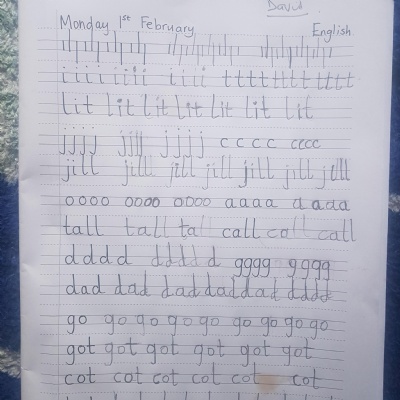 David
Monday 1st February English
i i i i i i i i i i i i t t t t t t t t t t t t
lit lit lit lit lit lit lit
j j j j j j j j j j j j c c c c c c c c
jill jill jill jill jill jill jill
o o o o o o o o o o o o a a a a a a a a
tall tall ta call call call
d d d d d d d d d g g g g g g g g
dad dad dad dad dad d d d d
go go go go go go go go go
got got got got got got
cot cot cot cot cot cot